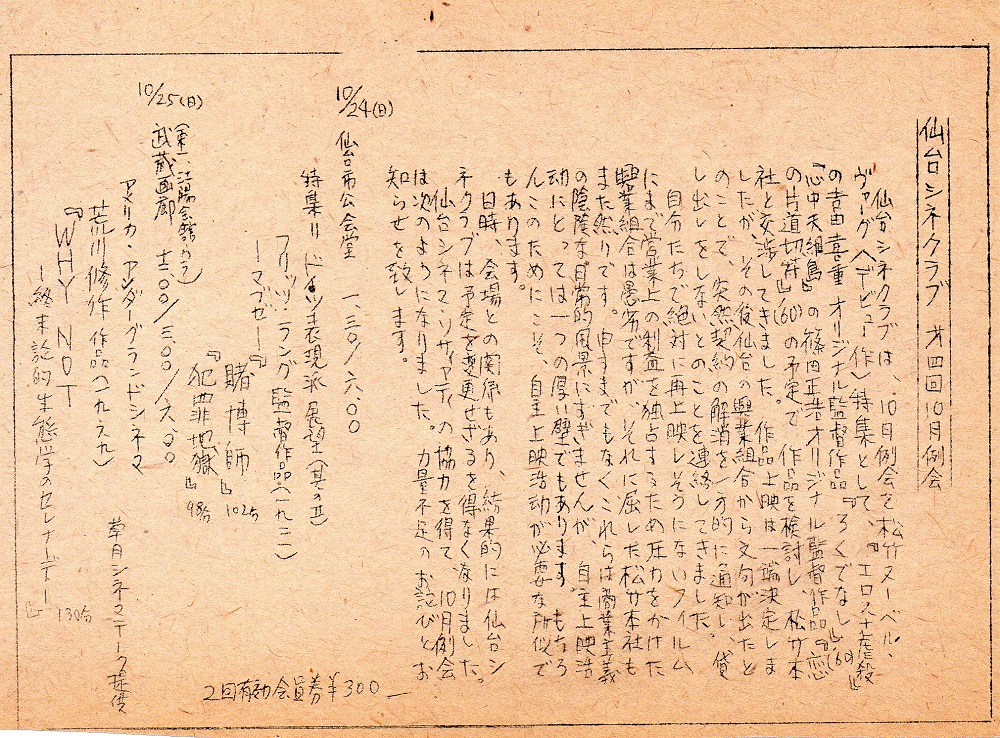 仙台シネクラブ 才四回10月例会
仙台シネクラブは、10月例会を松竹ヌーベル・
ヴァーグ〈デビュー作〉特集として、『エロス十虐殺』
の吉田喜重オリジナル監督作品『ろくでなし』(60)
『心中天網島』の篠田正浩オリジナル監督作品『恋
の片道切符』(60)の予定で、作品を検討し、松竹本
社と交渉してきました。作品上映は一端決定しま
したが、その後仙台の興業組合から文句が出たと
のことで、突然契約の解消を一方的に通知し、貸
し出しをしないとのことを連絡してきました。
自分たちで絶対に再上映しそうにないフィルム
にまで営業上の利益を独占するため圧力をかけた
興業組合は愚劣ですが、それに屈した松竹本社も
また然りです。申すまでもなくこれらは商業主義
の陰陰な日常的風景にすぎませんが、自主上映活
動にとっては一つの厚い壁でもあります。もちろ
んこのためにこそ、自主上映活動が必要な所似で
もあります。
日時、会場との関係もあり、結果的には仙台シ
ネクラブは予定を変更せざるを得なくなりました。
仙台シネマ・ソサイアティの協力を得て、10月例会
は次のようになりました。力量不足のお詫びとお
知らせを致します。
10/24(日) 仙台市公会堂 一.三〇/六.〇〇
特集 ドイツ表現派展望(其の廿)
フリッツ・ラング監督作品(一九二二)
ーマブゼー『賭博師』102分
『犯罪地獄』98分
10/25(日) (東一、江陽会館のうら)
武蔵画廊 十二.〇〇/三.〇〇/六.〇〇
アメリカ・アンダーグランドシネマ
荒川修作作品(一九六九) 草月シネマテーク提供
『WHY NOT
ー終末論的生態学のセレナーデー』130分
2回有効会員券¥300ー